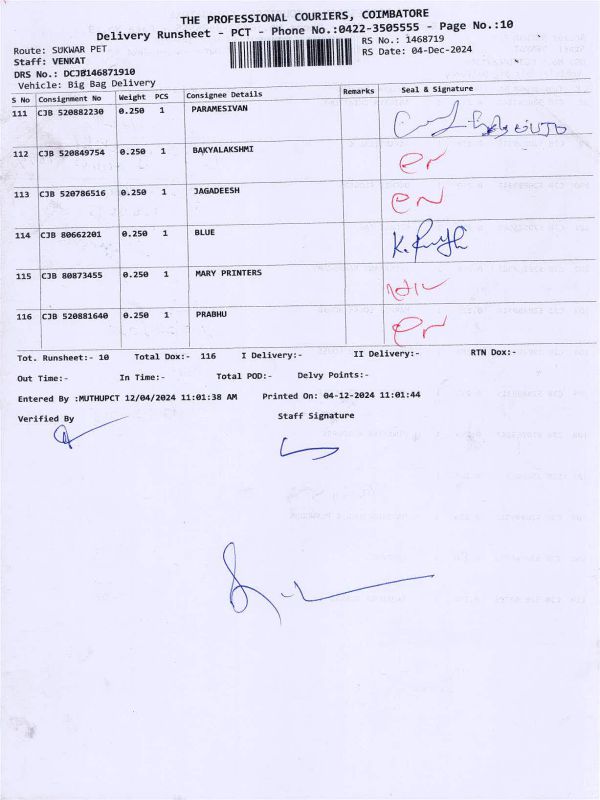 THE PROFESSIONAL COURIERS, COIMBATORE
Delivery Runsheet - PCT - Phone No.:0422-3505555 - Page No.:10
Route: SUKWAR PET
RS No.: 1468719
Staff: VENKAT
RS Date: 04-Dec-2024
DRS No.: DCJ0146871910
Vehicle: Big Bag Delivery
S No Consignment No Weight PCS Consignee Details Remarks Seal & Signature
111 CJB 520882230 0.250 1 PARAMESIVAN
112 CJB 520849754 0.250 1 BAKYALAKSHMI
113 CJB 520786516 0.250 1 JAGADEESH
114 CJB 80662201 0.250 1 BLUE
115 CJB 80873455 0.250 1 MARY PRINTERS
116 CJB 520881640 0.250 1 PRABHU
Tot. Runsheet:- 10 Total Dox:- 116 I Delivery:- II Delivery:- RTN Dox:-
Out Time:- In Time:- Total POD:- Delvy Points:-
Entered By :MUTHUPCT 12/04/2024 11:01:38 AM Printed On: 04-12-2024 11:01:44
Verified By Staff Signature